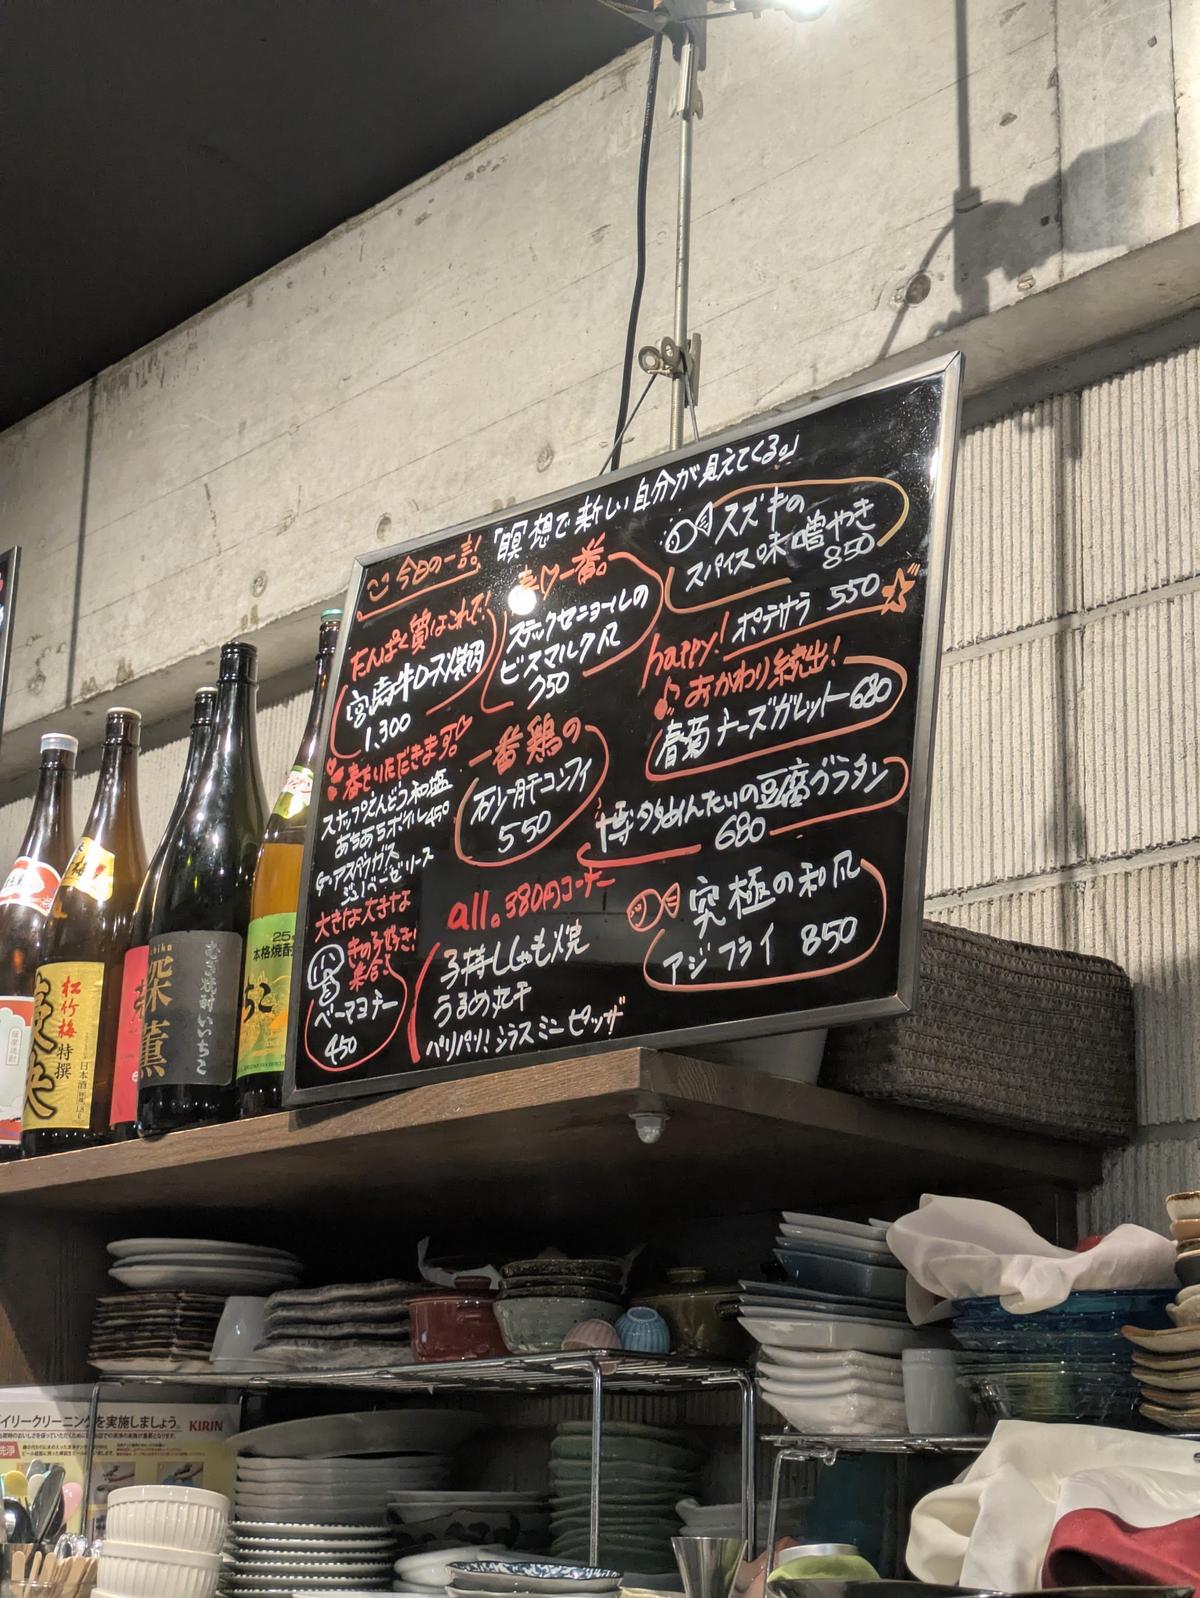 今日の一言!
「瞑想で新しい自分が見えてくる。」
たんぱく質はこれで!
宮崎牛ロース焼肉
1,300
春をいただきます。
スナップえんどう和塩
あちあちボイル 450
G・アスパラガス
春♡一番。
スティックセニョールの
ビスマルク風
750
一番鶏の
砂肝コンフィ
550
スズキの
スパイス味噌やき
850
happy!
ポテサラ 550
おかわり続出!
春菊チーズガレット 680
博多めんたいの豆腐グラタン
680
大きな大きな
きの子好き!
集合!
ベーマヨチー
450
all. 380円コーナー
子持ししゃも焼
うるめ丸干
パリパリ!シラスミニピッザ
究極の和風
アジフライ 850
松竹梅
特撰
日本酒
深薫
むぎ焼酎 いいちこ
25
本格焼酎
イリークリーニングを実施しましょう。
KIRIN
洗浄